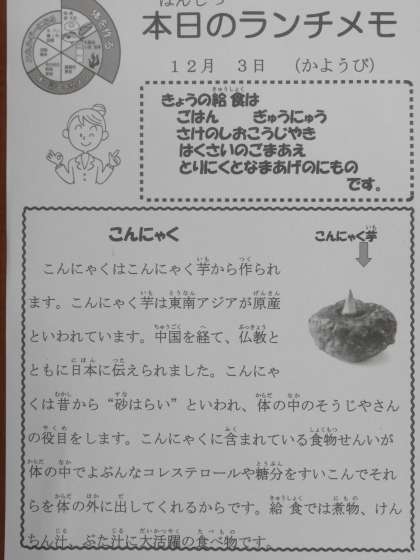 本日のランチメモ
12月 3日 (かようび)
きょうの給食は
ごはん ぎゅうにゅう
さけのしおこうじやき
はくさいのごまあえ
とりにくとなまあげのにもの
です。
こんにゃく
こんにゃく芋
こんにゃくはこんにゃく芋から作られ
ます。こんにゃく芋は東南アジアが原産
といわれています。中国を経て、仏教と
ともに日本に伝えられました。こんにゃ
くは昔から“砂はらい”といわれ、体の中のそうじやさん
の役目をします。こんにゃくに含まれている食物せんいが
体の中でよぶんなコレステロールや糖分をすいこんでそれ
らを体の外に出してくれるからです。給食では煮物、けん
ちん汁、ぶた汁に大活躍の食べ物です。